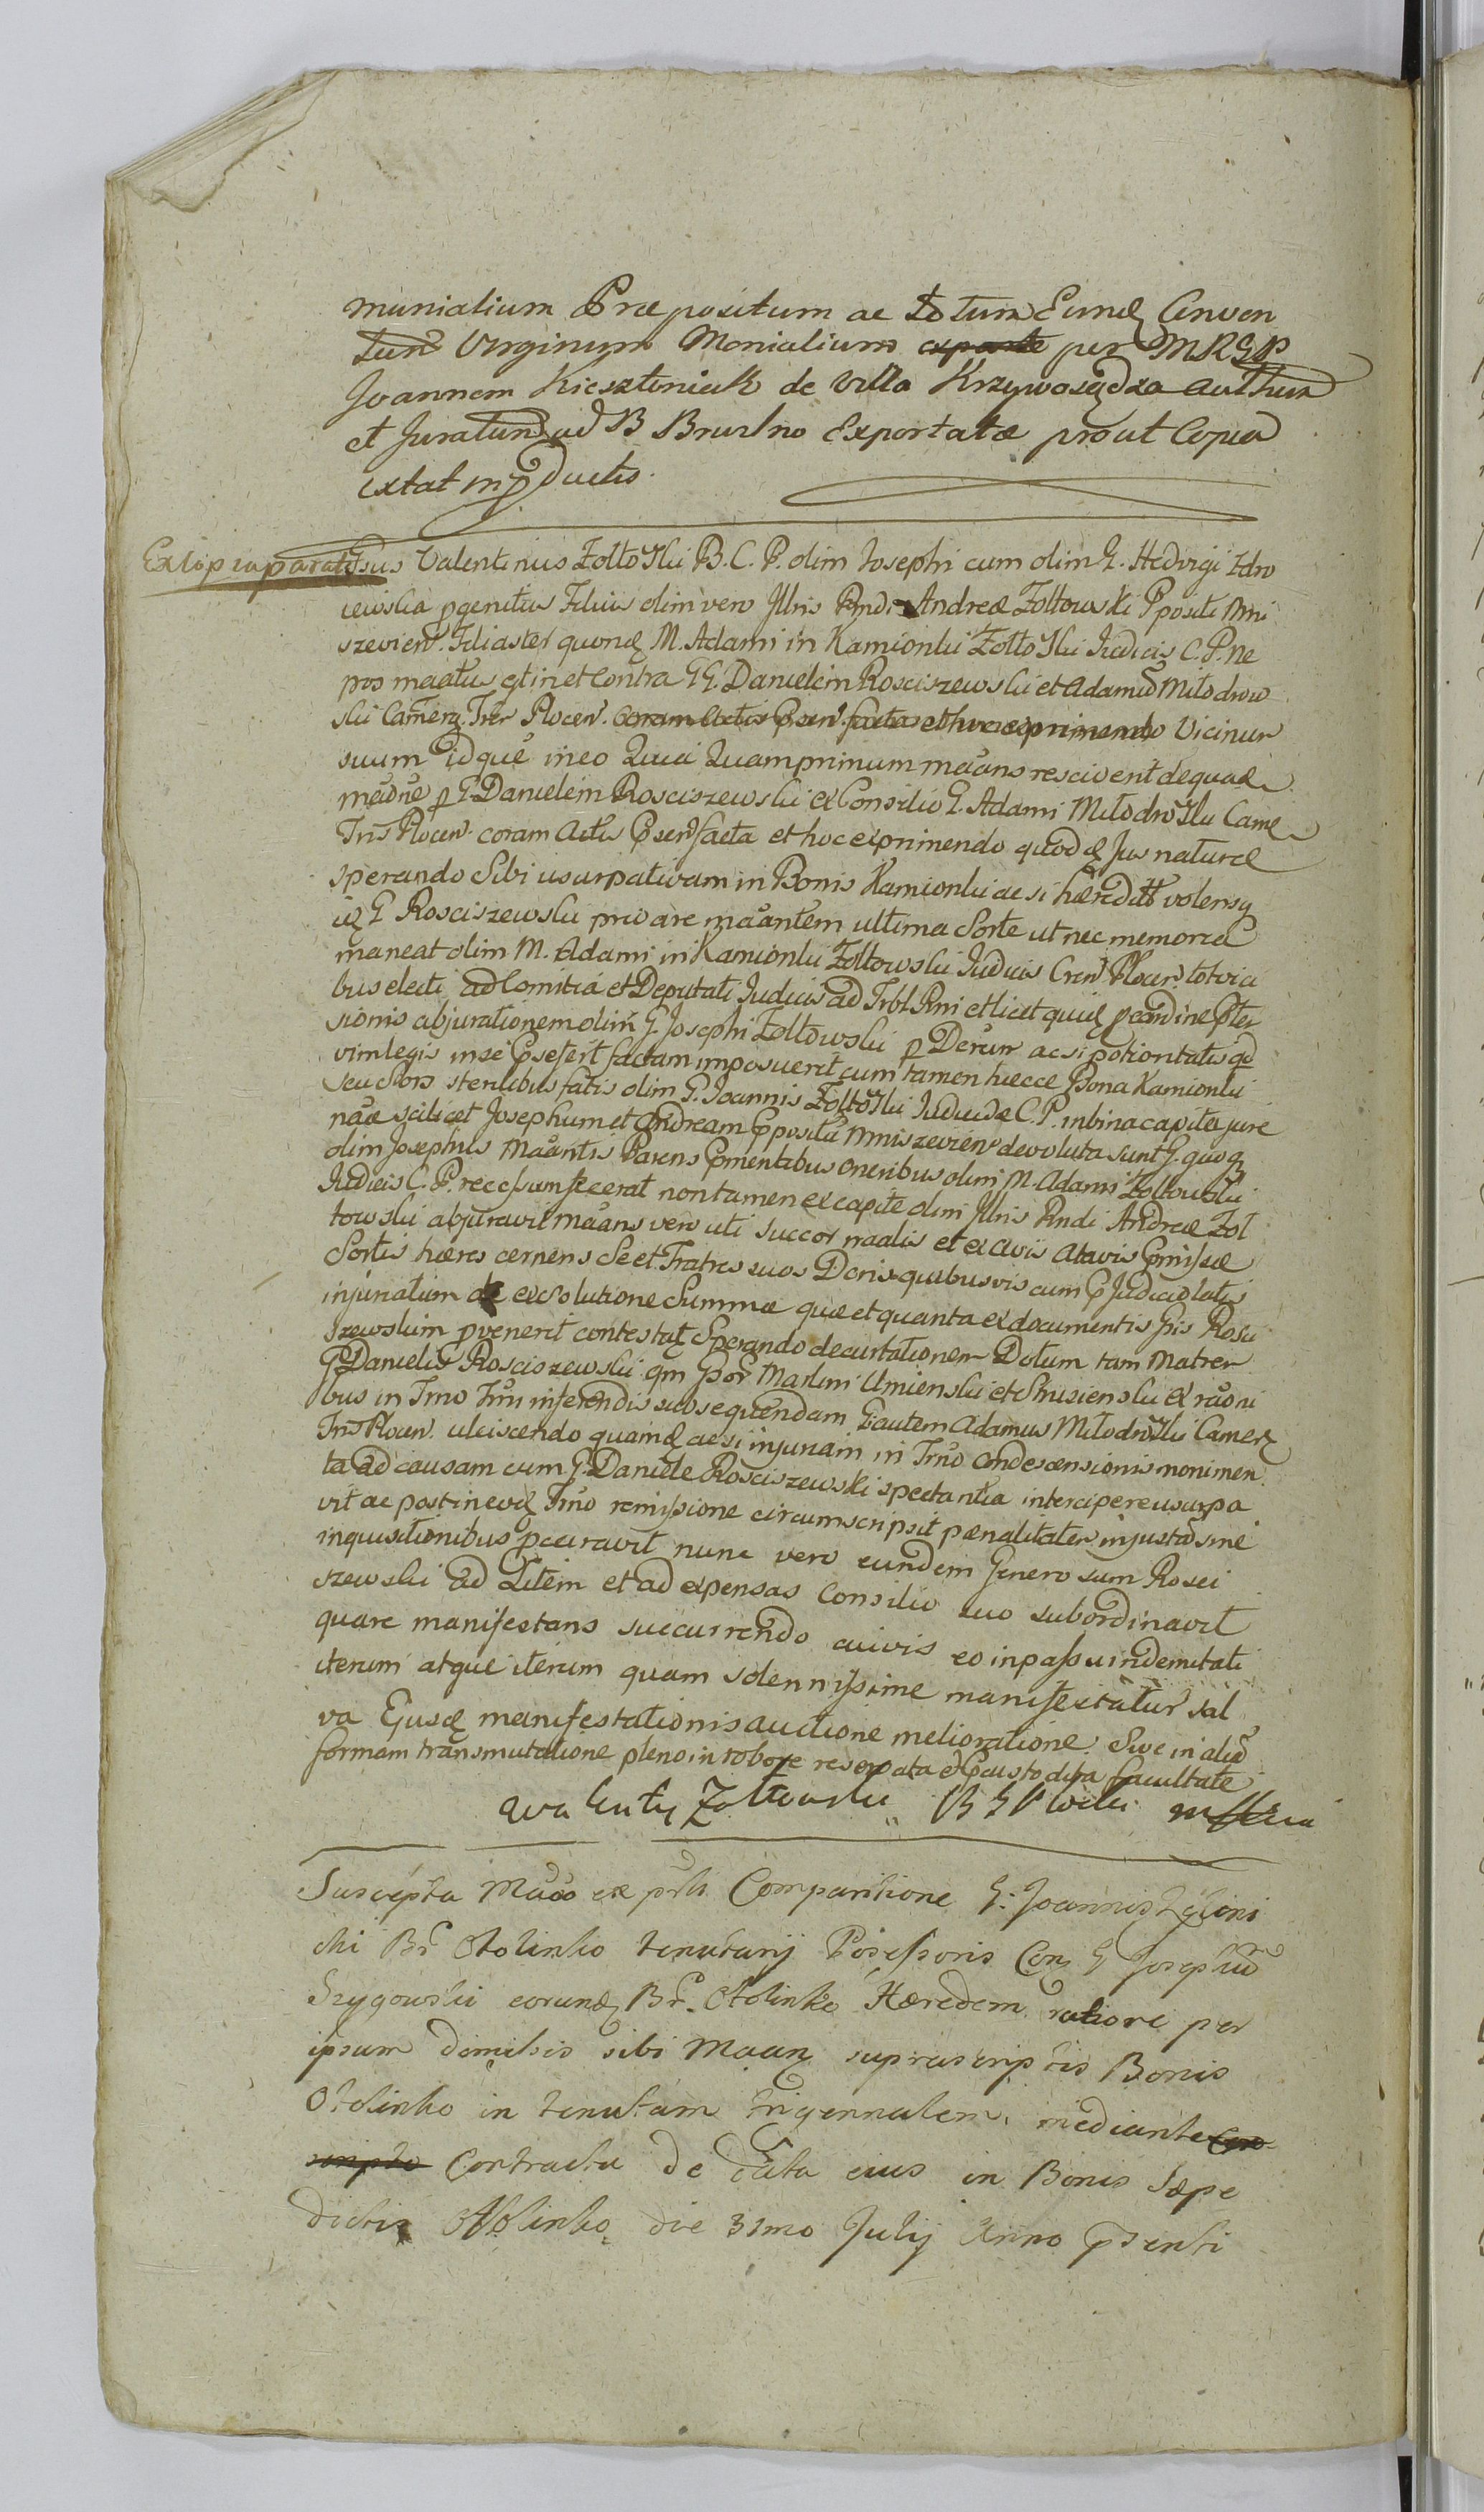 munialium Præpositum ac totum Eund Conven
tum Virginum Monialium exparte per MRGP
Joannem Kieszloniak de Villa Krzywosądza authum
et Juratum ad B Brudno Exportatæ prout Copia
extat inpductis.
Valentinus ZołtoWski B. C. P. olim Josephi cum olim G. Hedvigi Zdro
iewska pgenitus Filius olim vero Jllris Rndi Andreæ Zołtowski Ppositi Mni
szevien. Filiaster quond M. Adami in Kamionki ZołtoWski Judicis C. P. Ne
pos maatus gtin et Contra GG. Danielem Rosciszewski et Adamum Miłodrow
ski Camerz. Trer Plocen. Coram Actis Psen. factas et hoc exprimendo Vicinum
suum idque ineo Quia Quamprimum maans resciverit de quad
maone p G. Danielem Rosciszewski ex Consilio G. Adami MiłodroWski Came
Tris Plocen. coram Actis Psen facta et hoc exprimendo quod Jus naturæ
sperando Sibi usurpativam in Bonis Kamionki ac si hæredit volens
G Rosciszewski privare maantem ultima Sorte ut nec memoria
maneat olim M. Adami in Kamionki Zołtowski Judicis Cren Plocen. totvici
bus electi ad Comitia et Deputati Judicis ad Trbl Rni et licet quid pcardine Pter
sionis abjurationem olim G. Josephi Zołtowski p Derum ac si potiontatis qd
vim legis in se Psefert factam imposuerit cum tamen hæcce Bona Kamionki
seu Sors sterilibus fatis olim G. Joannis ZołtoWski Judicidæ C. P. in bina capita jure
nææ scilicet Josephum et Andream Ppositu Mniszevien devoluta sunt G. quoq
olim Josephus Maantis Parens Pmentibus oneribus olim M. Adami Zołtowski
Judicis C. P. recessum fecerat non tamen ex capite olim Jllris Rndi Andreæ Zoł
towski abjuravit maans vero uti succor naalis et ex avis atavis Pmissæ
Sortis hæres cernens Se et Fratres suos Donis quibusvis cum PJudicio latis
injuriatum de exsolutione Summæ quæ et quanta ex documentis Gsis Rosci
szewskim pvenerit contestat Sperando decurtationem Dotum tam Matrer
G Danielis Rosciszewski qm Gsor Martini Umienski et Strusienski ex raoni
bus in Trno Trni inferendis subsequendam G autem Adamus MiłodroWski Camerz
Tris Plocen. ulciscendo quamq ac si injuriam in Trno Condescensionis monimen
ta ad causam cum G. Daniele Rosciszewski spectantia intercipere usurpa
vit ac post ineod Trno remissione circumscripsit pænalitater injusta sine
inquisitionibus pcuravit nunc vero eundem Generosum Rosci
szewski ad Litem et ad expensas Consilio suo subordinavit
quare manifestans succurrendo cuivis eo inpassu indemnitati
iterum atque iterum quam solennissime manifestatur sal
va Ejusd manifestationis auctione melioratione. Sive in aliam
formam transmutatione pleno in robore reservata et Pcustodita facultate
Walenty Zołtowski
Suscepta Maao ex prti Comparitione G. Joannis Zglini
cki Br. Otolinko tenutarij Possessoris Con G Josephum
Szygowski eorund Br. Otolinko Hæredem ratione per
ipsum dimissis sibi Maan suprascriptis Bonis
Otolinko in tenutam trigennalem, mediante Con
scripto Contractu de data eius in Bonis Sæpe
dictis Otolinko die 31mo Julij Anno Psenti